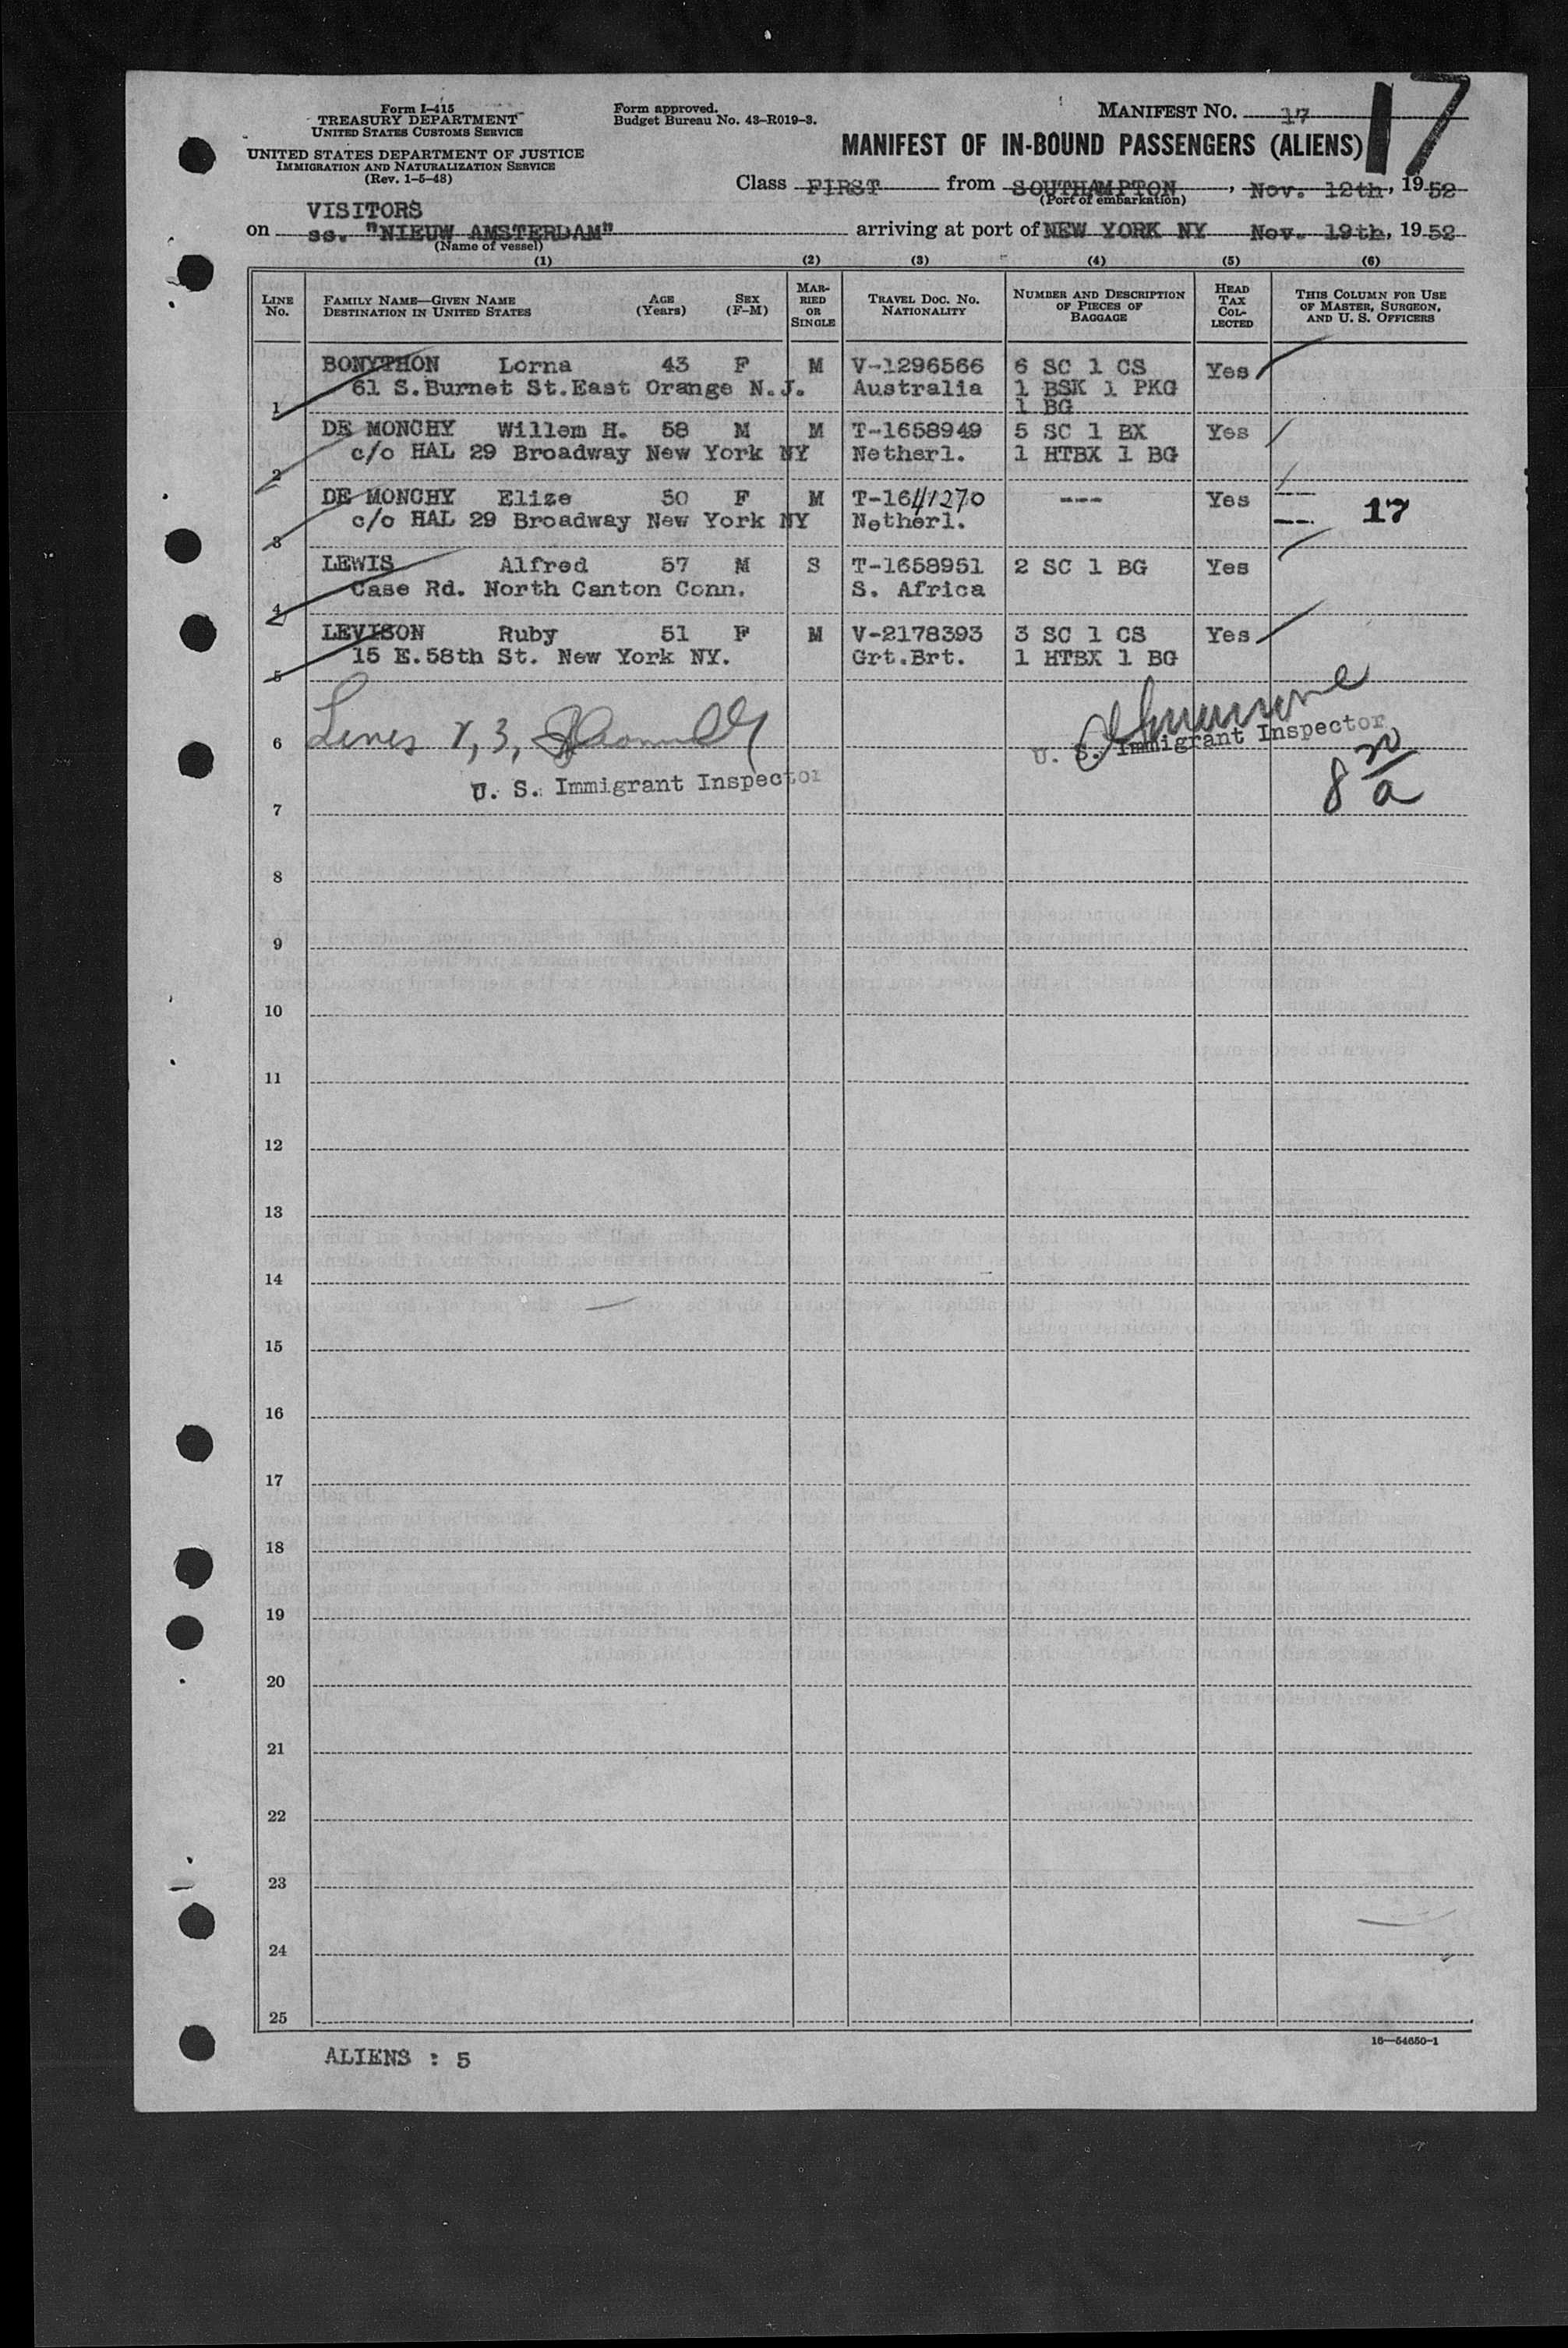 Form I-415
TREASURY DEPARTMENT
UNITED STATES CUSTOMS SERVICE
UNITED STATES DEPARTMENT OF JUSTICE
IMMIGRATION AND NATURALIZATION SERVICE
(Rev. 1-5-48)
Form approved.
Budget Bureau No. 43-R019-3.
MANIFEST NO. 17
17
MANIFEST OF IN-BOUND PASSENGERS (ALIENS)
Class FIRST from SOUTHAMPTON, Nov. 12th, 1952
(Port of embarkation)
VISITORS
on ss. "NIEUW AMSTERDAM" arriving at port of NEW YORK NY Nov. 19th, 1952
(Name of vessel)
(1) (2) (3) (4) (5) (6)
LINE NO. FAMILY NAME—GIVEN NAME DESTINATION IN UNITED STATES AGE (Years) SEX (F-M) MARRIED OR SINGLE TRAVEL DOC. NO. NATIONALITY NUMBER AND DESCRIPTION OF PIECES OF BAGGAGE HEAD TAX COLLECTED THIS COLUMN FOR USE OF MASTER, SURGEON, AND U. S. OFFICERS
BONYTHON Lorna 43 F M V-1296566 6 SC 1 CS Yes
61 S.Burnet St.East Orange N.J. Australia 1 BSK 1 PKG
1 1 BG
DE MONCHY Willem H. 58 M M T-1658949 5 SC 1 BX Yes
2 c/o HAL 29 Broadway New York NY Netherl. 1 HTBX 1 BG
DE MONCHY Elize 50 F M T-1641270 --- Yes
3 c/o HAL 29 Broadway New York NY Netherl. 17
LEWIS Alfred 57 M S T-1658951 2 SC 1 BG Yes
4 Case Rd. North Canton Conn. S. Africa
LEVISON Ruby 51 F M V-2178393 3 SC 1 CS Yes
5 15 E.58th St. New York NY. Grt.Brt. 1 HTBX 1 BG
6 Lines 3,
U. S. Immigrant Inspector
U. S. Immigrant Inspector
8 30/a
7
8
9
10
11
12
13
14
15
16
17
18
19
20
21
22
23
24
25
16—54650-1
ALIENS : 5